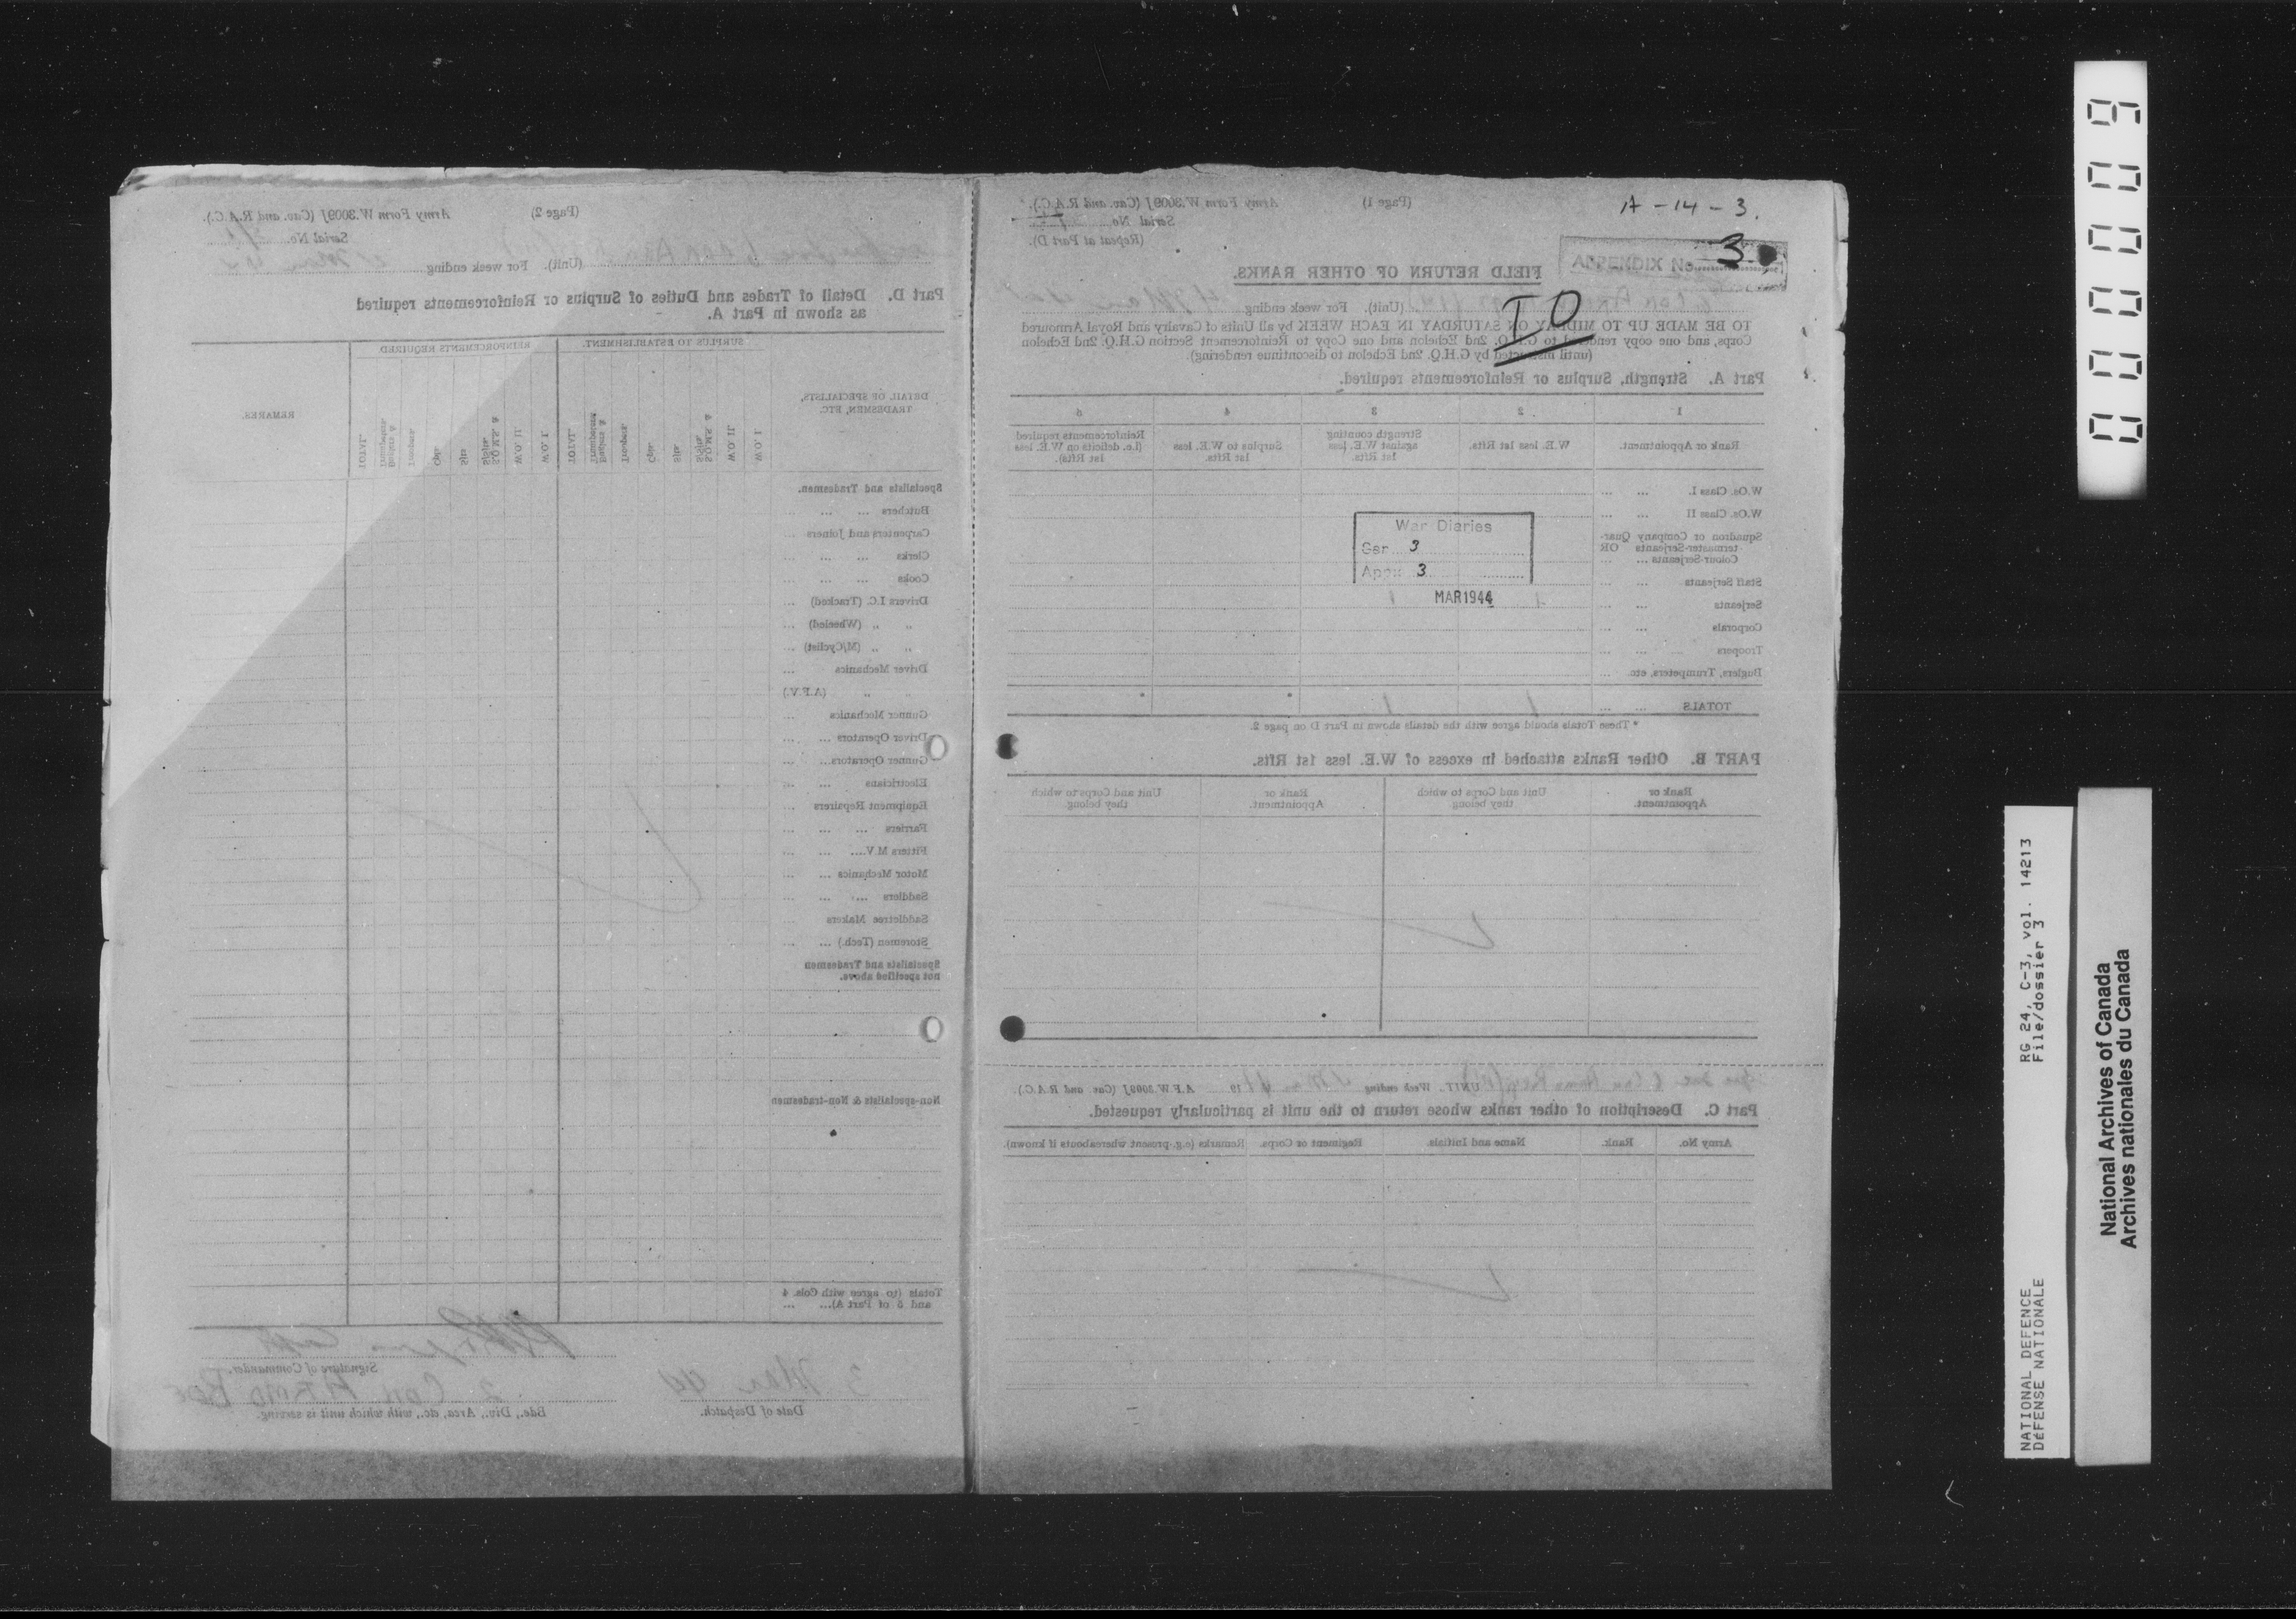 (Page 2)
Army Form W.3009J (Cav. and R.A.C.).
Serial No.
(Unit). For week ending
Part D. Detail of Trades and Duties of Surplus or Reinforcements required
as shown in Part A.
SURPLUS TO ESTABLISHMENT.
REINFORCEMENTS REQUIRED
DETAIL OF SPECIALISTS,
TRADESMEN, ETC.
W.O. I.
W.O. II.
S.Q.M.S. &
S/Sjts.
Sjts
Cpls
Troopers
Buglers &
Trumpeters
TOTAL
W.O. I.
W.O. II.
S.Q.M.S. &
S/Sjts.
Sjts
Cpls
Troopers
Buglers &
Trumpeters
TOTAL
REMARKS.
Specialists and Tradesmen.
Butchers
Carpenters and Joiners
Clerks
Cooks
Drivers I.C. (Tracked)
" " (Wheeled)
" " (M/Cyclist)
Driver Mechanics
" " (A.F.V.)
Gunner Mechanics
Driver Operators
Gunner Operators
Electricians
Equipment Repairers
Farriers
Fitters M.V.
Motor Mechanics
Saddlers
Saddletree Makers
Storemen (Tech.)
Specialists and Tradesmen
not specified above.
Non-specialists & Non-tradesmen
Totals (to agree with Cols. 4
and 5 of Part A)
Signature of Commander.
3 Mar 44
2 Cdn Armd Bde
Date of Despatch.
Bde., Div., Area, &c., with which unit is serving.
A-14-3.
(Page 1)
Army Form W.3009J (Cav. and R.A.C.).
Serial No.
(Repeat at Part D).
APPENDIX No. 3
FIELD RETURN OF OTHER RANKS.
IO
(Unit). For week ending
TO BE MADE UP TO MIDDAY ON SATURDAY IN EACH WEEK by all Units of Cavalry and Royal Armoured
Corps, and one copy rendered to G.H.Q. 2nd Echelon and one Copy to Reinforcement Section G.H.Q. 2nd Echelon
(until instructed by G.H.Q. 2nd Echelon to discontinue rendering)
Part A. Strength, Surplus or Reinforcements required.
1 2 3 4 5
Rank or Appointment.
W.E. less 1st Rfts.
Strength counting
against W.E. less
1st Rfts.
Surplus to W.E. less
1st Rfts.
Reinforcements required
(i.e. deficits on W.E. less
1st Rfts).
W.Os. Class I.
W.Os. Class II
Squadron or Company Quar-
termaster-Serjeants OR
Colour-Serjeants
Staff Serjeants
Serjeants
Corporals
Troopers
Buglers, Trumpeters, etc.
TOTALS
War Diaries
Ser. 3
Appx 3
MAR 1944
* These Totals should agree with the details shown in Part D on page 2.
PART B. Other Ranks attached in excess of W.E. less 1st Rfts.
Rank or
Appointment.
Unit and Corps to which
they belong
Rank or
Appointment.
Unit and Corps to which
they belong
UNIT. Week ending 19 A.F.W.3009J (Cav and R.A.C.).
Part C. Description of other ranks whose return to the unit is particularly requested.
Army No.
Rank.
Name and Initials.
Regiment or Corps.
Remarks (e.g. present whereabouts if known).
00009
RG 24, C-3, vol. 14213
File/dossier 3
NATIONAL DEFENCE
DÉFENSE NATIONALE
National Archives of Canada
Archives nationales du Canada